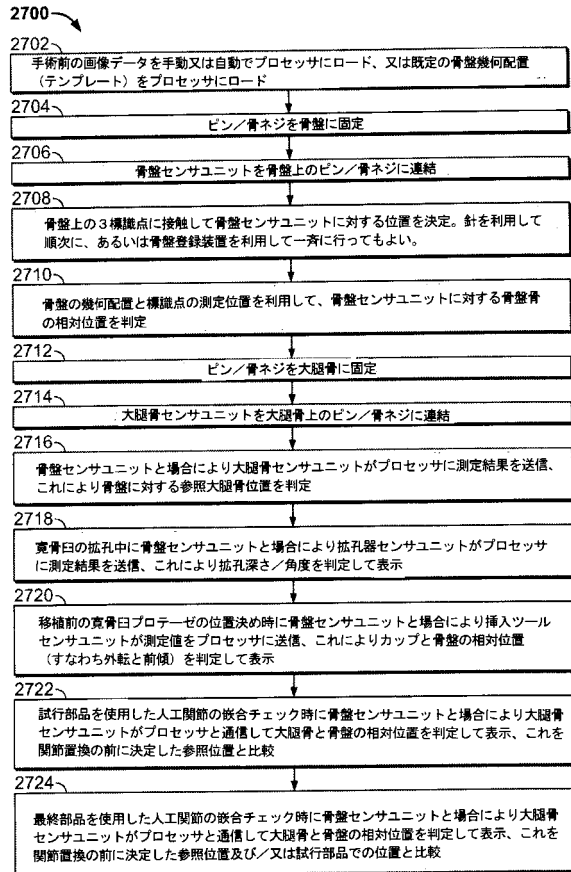 2700
2702
手術前の画像データを手動又は自動でプロセッサにロード、又は既定の骨盤幾何配置
（テンプレート）をプロセッサにロード
2704
ピン／骨ネジを骨盤に固定
2706
骨盤センサユニットを骨盤上のピン／骨ネジに連結
2708
骨盤上の３標識点に接触して骨盤センサユニットに対する位置を決定。針を利用して
順次に、あるいは骨盤登録装置を利用して一斉に行ってもよい。
2710
骨盤の幾何配置と標識点の測定位置を利用して、骨盤センサユニットに対する骨盤骨
の相対位置を判定
2712
ピン／骨ネジを大腿骨に固定
2714
大腿骨センサユニットを大腿骨上のピン／骨ネジに連結
2716
骨盤センサユニットと場合により大腿骨センサユニットがプロセッサに測定結果を送信、
これにより骨盤に対する参照大腿骨位置を判定
2718
寛骨臼の拡孔中に骨盤センサユニットと場合により拡孔器センサユニットがプロセッサ
に測定結果を送信、これにより拡孔深さ／角度を判定して表示
2720
移植前の寛骨臼プロテーゼの位置決め時に骨盤センサユニットと場合により挿入ツール
センサユニットが測定値をプロセッサに送信、これによりカップと骨盤の相対位置
（すなわち外転と前傾）を判定して表示
2722
試行部品を使用した人工関節の嵌合チェック時に骨盤センサユニットと場合により大腿骨
センサユニットがプロセッサと通信して大腿骨と骨盤の相対位置を判定して表示、これを
関節置換の前に決定した参照位置と比較
2724
最終部品を使用した人工関節の嵌合チェック時に骨盤センサユニットと場合により大腿骨
センサユニットがプロセッサと通信して大腿骨と骨盤の相対位置を判定して表示、これを
関節置換の前に決定した参照位置及び／又は試行部品での位置と比較